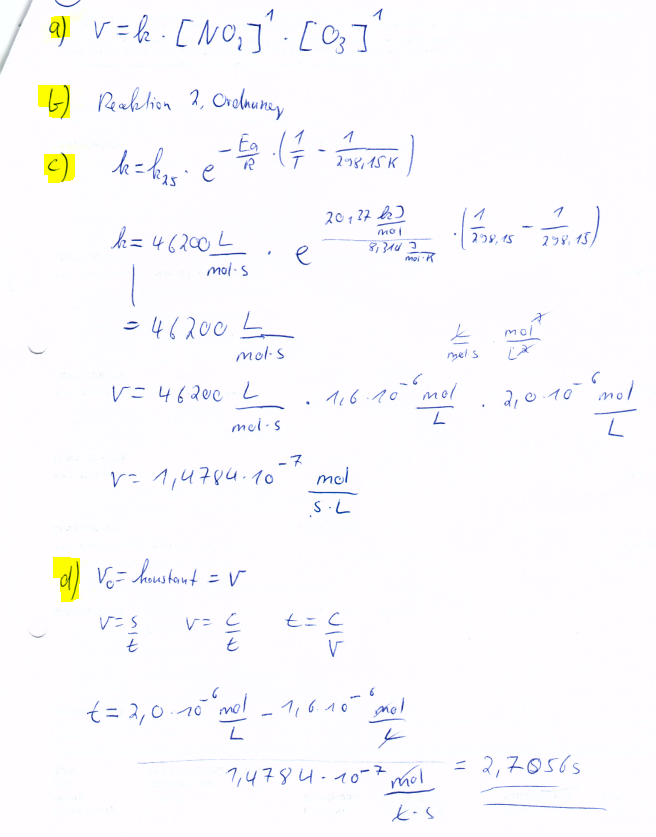 a) v = k · [NO₂]¹ · [O₃]¹
b) Reaktion 2. Ordnung
c) k = k₂₅ · e^(-Ea/R · (1/T - 1/298,15K))
k = 46200 L/mol·s · e^(20,27 kJ/mol / 8,314 J/mol·K · (1/298,15 - 1/298,15))
= 46200 L/mol·s
L/mol·s · mol²/L²
v = 46200 L/mol·s · 1,6·10⁻⁶ mol/L · 2,0·10⁻⁶ mol/L
v = 1,4784·10⁻⁷ mol/s·L
d) v₀ = konstant = v
v = s/t v = c/t t = c/v
t = 2,0·10⁻⁶ mol/L - 1,6·10⁻⁶ mol/L
1,4784·10⁻⁷ mol/L·s = 2,7056s